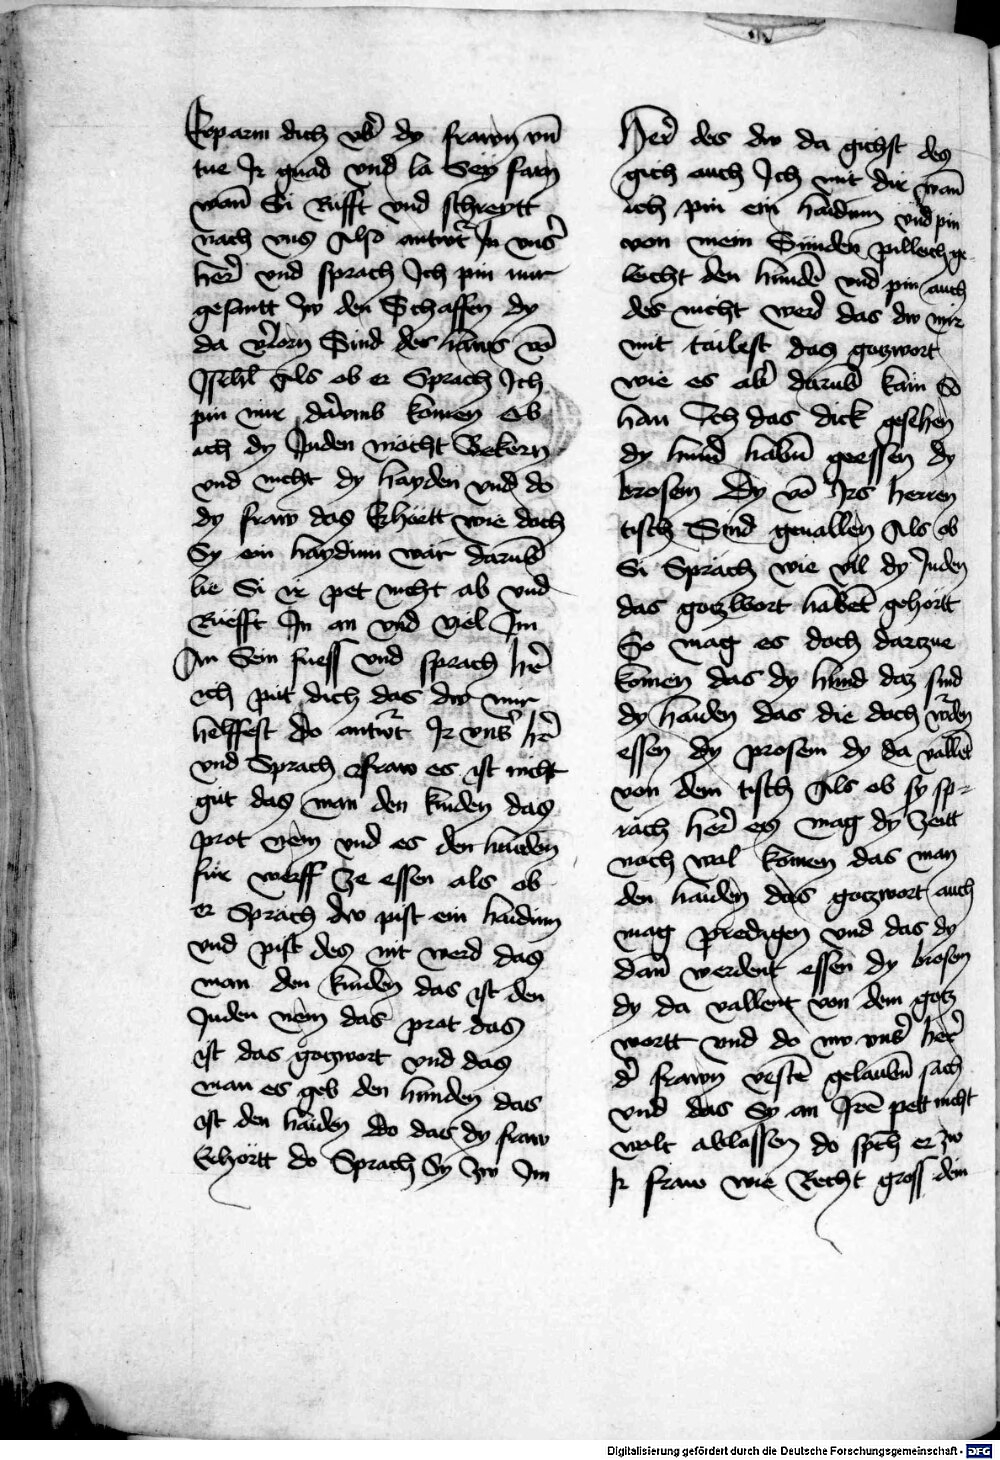 Erparm dich vb̄ dy frawn vn̄
tue Ir gnad vnd la Sey farn
wan̄ Si Rufft vnd schreytt
nach vns Also antw̄t In vns̄
her̄ vnd sprach Ich pin nur
gesantt zw den Schaffen dy
da v̄lorn Sind des haws vō
Isrl Als ob er Sprach Ich
pin nur dar̄vmb komen Ob
ich dy Juden mocht Bekern
vnd nicht dy hayden vnd do
dy fraw das Erhortt wie doch
Sy ein haydinn war darūb
lie Si ir pet nicht ab vnd
Rüefft In an vnd viel Im
An Sein fuess vnd sprach her̄
ich pit dich das dw mir
helffest Do antw̄t Ir vns̄ her̄
vnd Sprach fraw es ist nicht
gut das man den kinden das
prot nem vnd es den hunden
für werff ze essen als ob
er Sprach dw pist ein haidinn
vnd pist des nit werd das
man den kinden das ist den
Juden nem das prot das
ist das gotzwort vnd das
man es geb den hunden das
ist den haiden Do das dy fraw
Erhortt do Sprach Sy zw Im
Her̄ des dw da gichst des
gich auch Ich mit dir wan̄
ich pin ein haidinn vnd pin
von mein Sünden pilleich ge
leicht den hunden̄ vnd pin auch
des nicht werd das dw mir
mit tailest das gotzwort
wie es ab̄ darūb kain So
han Ich das dick gesehen
dy hund̄ habn̄ geessen dy
brosem Dy vō Irs herren
tisch Sind geuallen Als ob
Si Sprach wie vil dy Juden
das gotzwort habet̄ gehortt
So mag es doch dartzue
komen das dy hund daz sind
dy haiden das die doch w̄den
essen dy prosem dy da vallet̄
von dem tisch Als ob sy sp-
rach her̄ es mag dy zeitt
noch wol komen das man
den haiden das gotzwort auch
mag predigen vnd das dy
dan̄ werdent essen dy brosem
dy da vallent von dem gotz
wortt vnd do nw vns̄ her̄
d̄ frawn vestē gelaubn̄ sach
vnd das Sy an Irē pett nicht
wolt ablassen do sp̄ch er zw
Ir fraw wie Recht gross dein
Digitalisierung gefördert durch die Deutsche Forschungsgemeinschaft - DFG